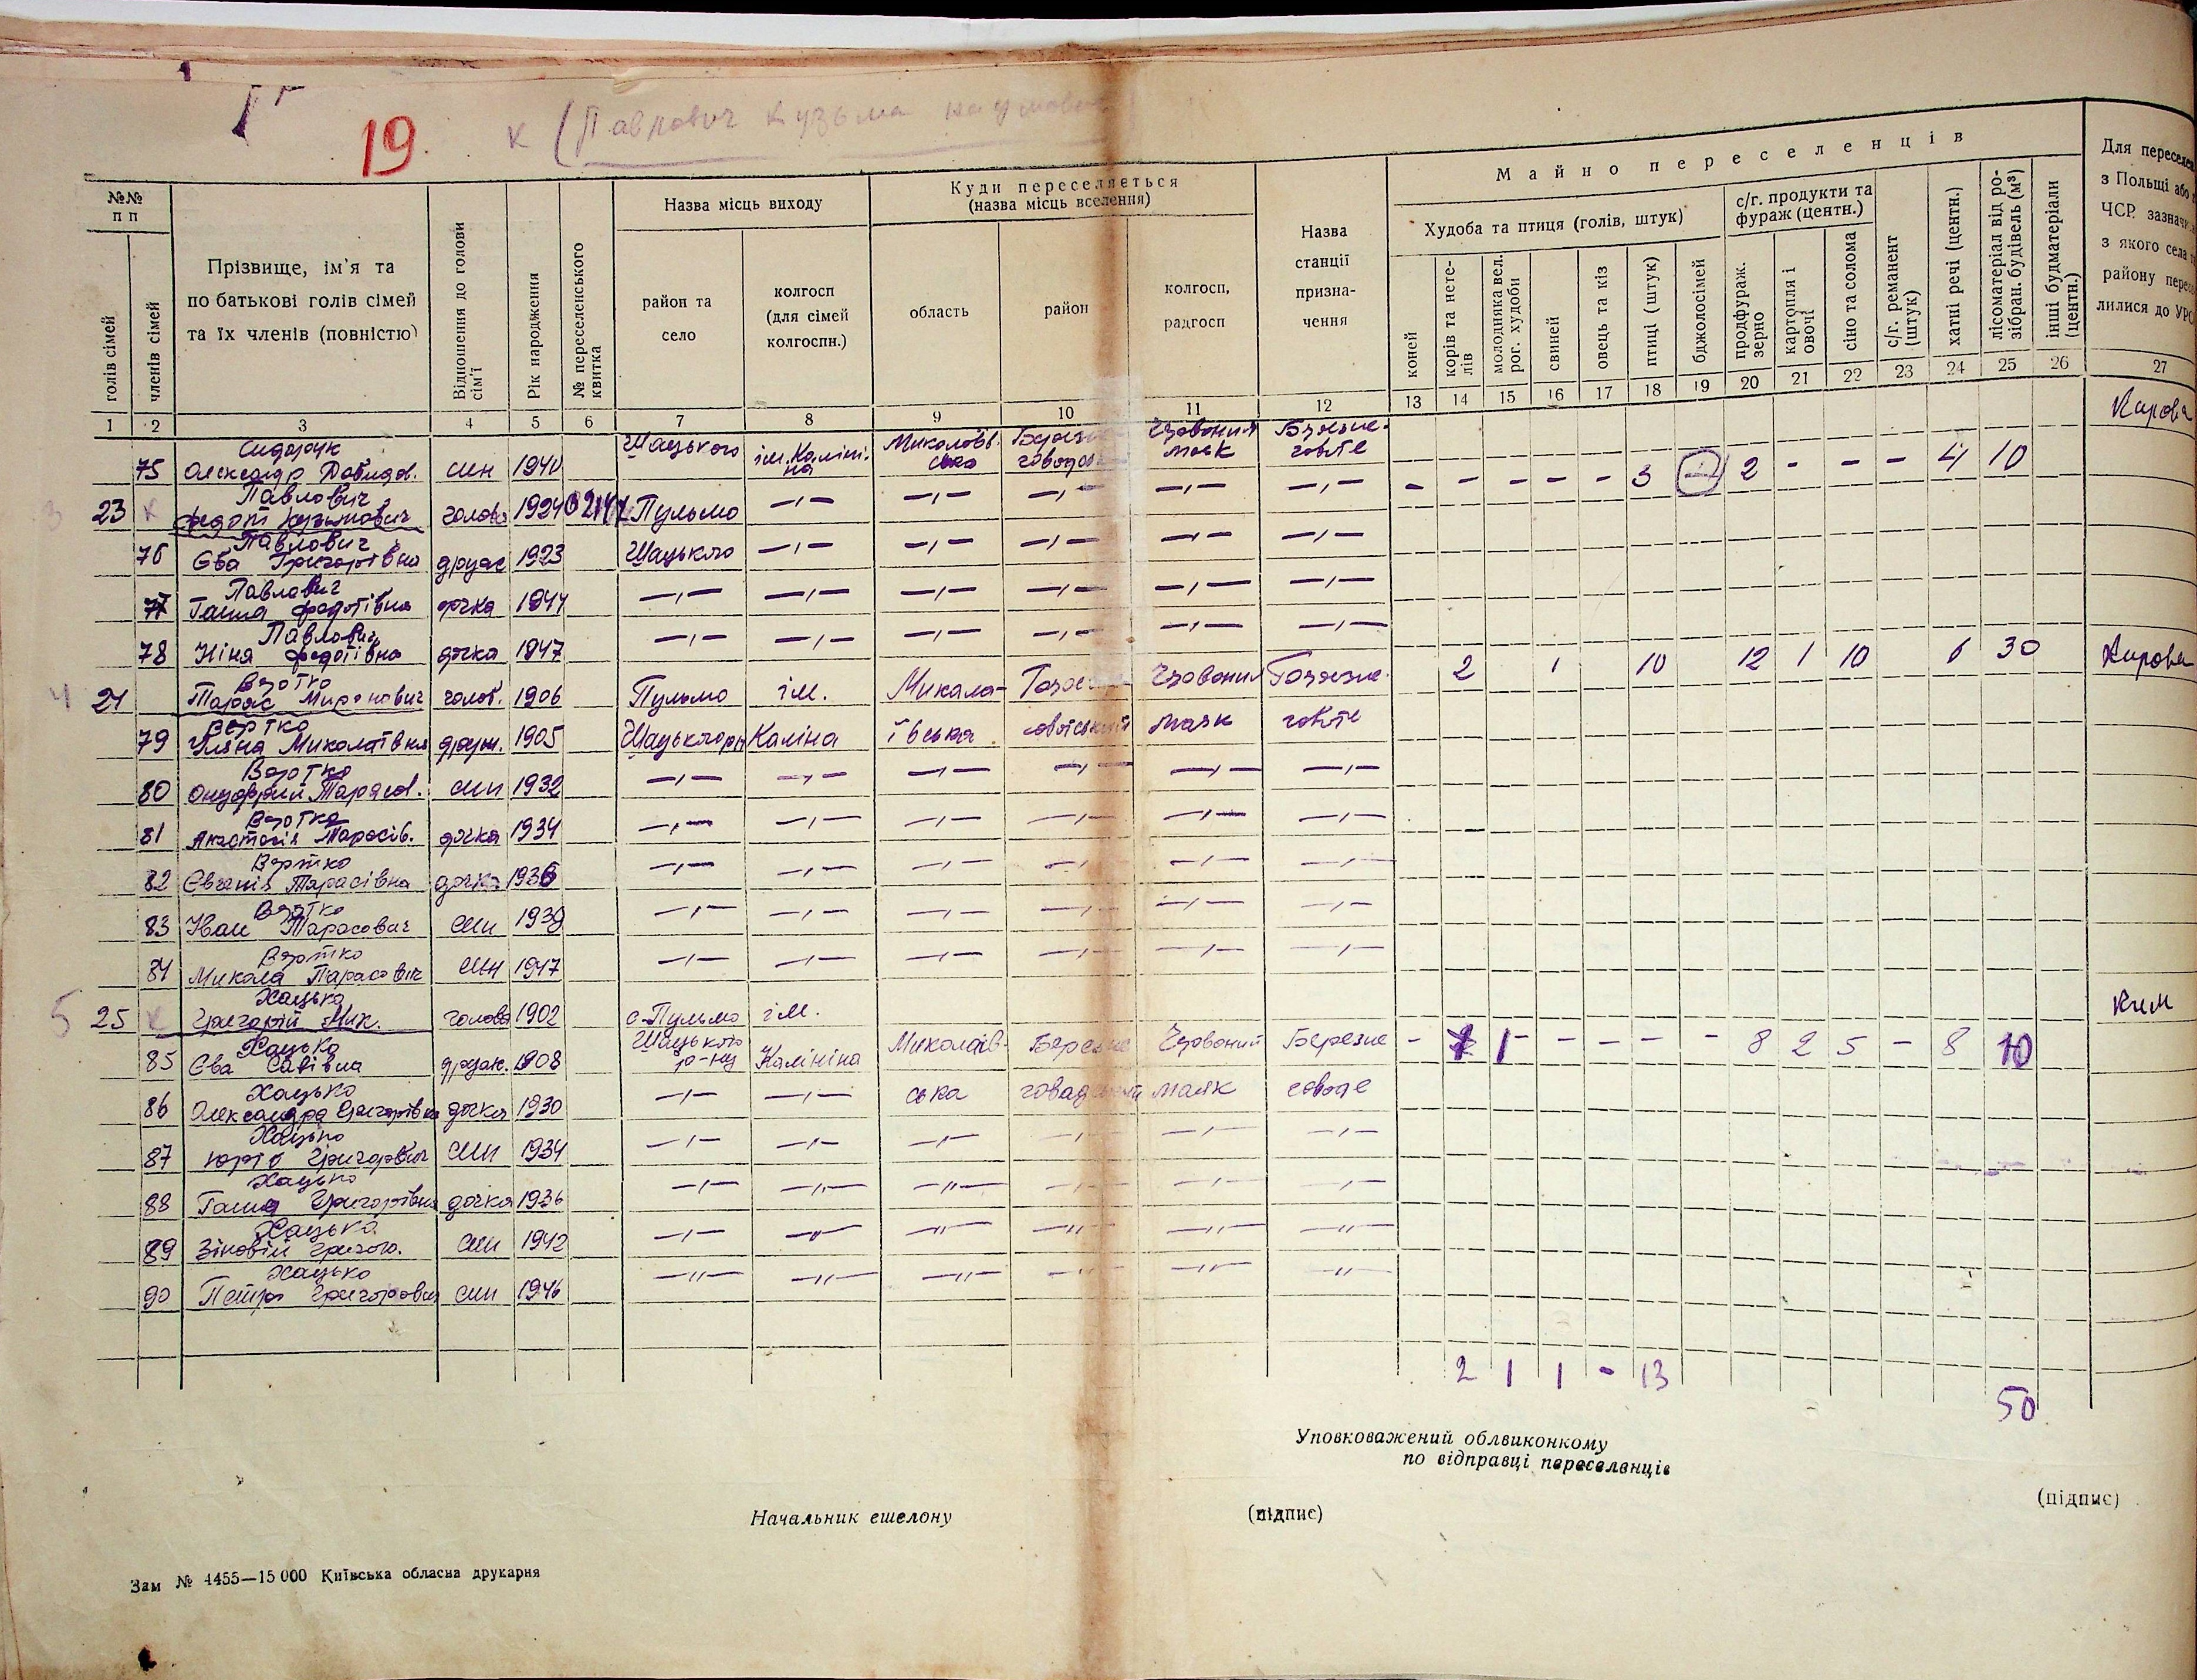 19.
к (Павлович Кузьма Наумович)
№№ п п
голів сімей
членів сімей
Прізвище, ім'я та
по батькові голів сімей
та їх членів (повністю)
Відношення до голови сім'ї
Рік народження
№ переселенського квитка
Назва місць виходу
район та
село
колгосп
(для сімей
колгоспн.)
Куди переселяється
(назва місць вселення)
область
район
колгосп,
радгосп
Назва
станції
призна-
чення
Майно переселенців
Худоба та птиця (голів, штук)
коней
корів та нете-
лів
молодняка вел.
рог. худоби
свиней
овець та кіз
птиці (штук)
бджолосімей
с/г. продукти та
фураж (центн.)
продфураж.
зерно
картопля і
овочі
сіно та солома
с/г. реманент
(штук)
хатні речі (центн.)
лісоматеріал від ро-
зібран. будівель (м³)
інші будматеріали
(центн.)
Для переселен
з Польщі або
ЧСР. зазнач
з якого села
району перес
лилися до УРС
1 2 3 4 5 6 7 8 9 10 11 12 13 14 15 16 17 18 19 20 21 22 23 24 25 26 27
Сидорук Шацького ім. Каліні- Миколаїв. Березне Червоний Березне- Кирова
75 Олександр Давидов. син 1940 на ська маяк
Павлович
3 23 к Федот Кузьмович голова 1924 Пульмо —„— —„— —„— —„— —„— - - - - - 3 2 - - - 4 10
Павлович
76 Єва Григорівна друж 1923 Шацькго —„— —„— —„— —„— —„—
Павлович
77 Ганна Федотівна дочка 1944 —„— —„— —„— —„— —„— —„—
Павлович
78 Ніна Федотівна дочка 1947 —„— —„— —„— —„— —„— —„—
Вертко
4 24 Тарас Миронович голов. 1906 Пульмо ім. Микола- Червоний Березне. 2 1 10 12 1 10 6 30 Кирова
Вертко
79 Уляна Миколаївна друж. 1905 Каліна ївська маяк
Вертко
80 Онуфрий Тарасов. син 1932 —„— —„— —„— —„— —„— —„—
Вертко
81 Анастасія Тарасів. дочка 1934 —„— —„— —„— —„— —„— —„—
Вертко
82 Євгенія Тарасівна дочка 1936 —„— —„— —„— —„— —„— —„—
Вертко
83 Іван Тарасович син 1939 —„— —„— —„— —„— —„— —„—
Вертко
84 Микола Тарасович син 1947 —„— —„— —„— —„— —„— —„—
Хацько
5 25 к Григорій Мик. голова 1902 с. Пульмо ім. Ким
Хацько Шацького
85 Єва Савівна друж. 1908 р-ну Калініна Миколаїв- Березне Червоний Березне - 1 - - - - - 8 2 5 - 8 10
Хацько
86 Олександра Григорівна дочка 1930 —„— —„— ська маяк
Хацько
87 Григорович син 1934 —„— —„— —„— —„— —„— —„—
Хацько
88 Ганна Григорівна дочка 1936 —„— —„— —„— —„— —„— —„—
Хацько
89 Зіновій Григор. син 1942 —„— —„— —„— —„— —„— —„—
Хацько
90 Петро Григорович син 1946 —„— —„— —„— —„— —„— —„—
2 1 1 - 13
50
Уповноважений облвиконкому
по відправці переселенців
Начальник ешелону
(підпис)
(підпис)
Зам № 4455—15 000 Київська обласна друкарня